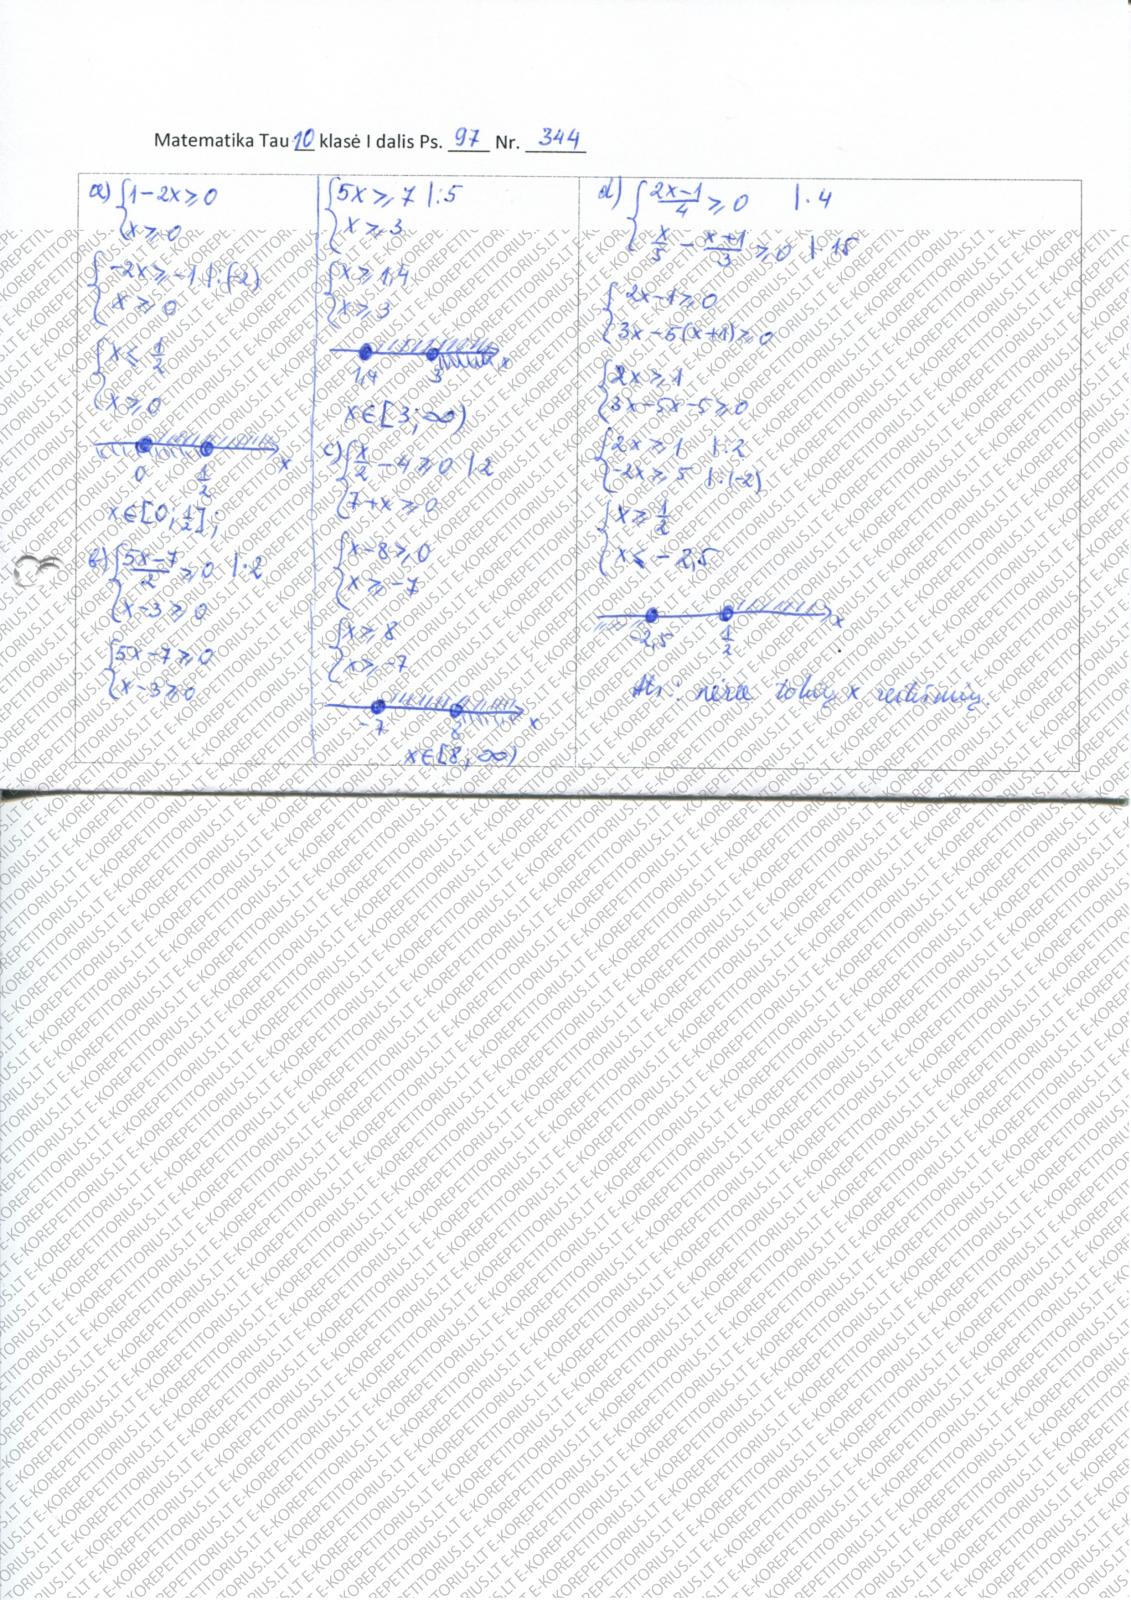 Matematika Tau 10 klasė I dalis Ps. 97 Nr. 344
a) {1-2x≥0
x≥0
{-2x≥-1 |:(-2)
x≥0
{x≤ 1/2
x≥0
0 1/2 x
x∈[0; 1/2];
b) {(5x-7)/2 ≥0 |·2
x-3≥0
{5x-7≥0
x-3≥0
{5x≥7 |:5
x≥3
{x≥1,4
x≥3
1,4 3 x
x∈[3;∞)
c) {x/2 -4≥0 |·2
7+x≥0
{x-8≥0
x≥-7
{x≥8
x≥-7
-7 8 x
x∈[8;∞)
d) {(2x-1)/4 ≥0 |·4
x/5 - (x+1)/3 ≥0 |·15
{2x-1≥0
3x-5(x+1)≥0
{2x≥1
3x-5x-5≥0
{2x≥1 |:2
-2x≥5 |:(-2)
{x≥ 1/2
x≤-2,5
-2,5 1/2 x
Ats: nėra tokių x reikšmių.
E-KOREPETITORIUS.LT